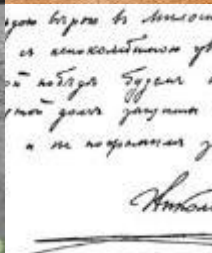 вѣрою въ милос
съ непоколебимою ув
ой побѣдѣ будемъ
долгъ защиты
и не посрамимъ з
Никол